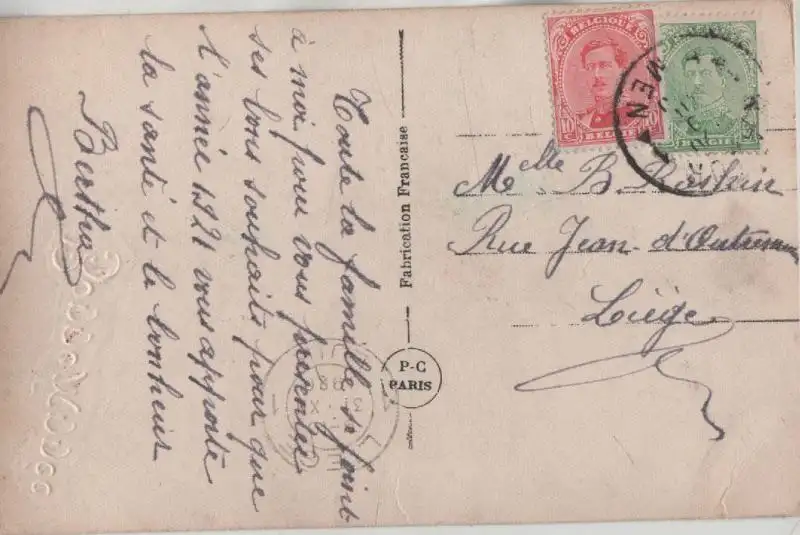 Toute la famille se joint
à moi pour vous présenter
ses bons souhaits pour que
l'année 1921 vous apporte
la santé et le bonheur
Bertha
Fabrication Française
P-C
PARIS
BELGIQUE
10 C 10 C
BELGIE
BELGIE
MEN
1
Melle B.
Rue Jean-d'Outremeuse
Liège